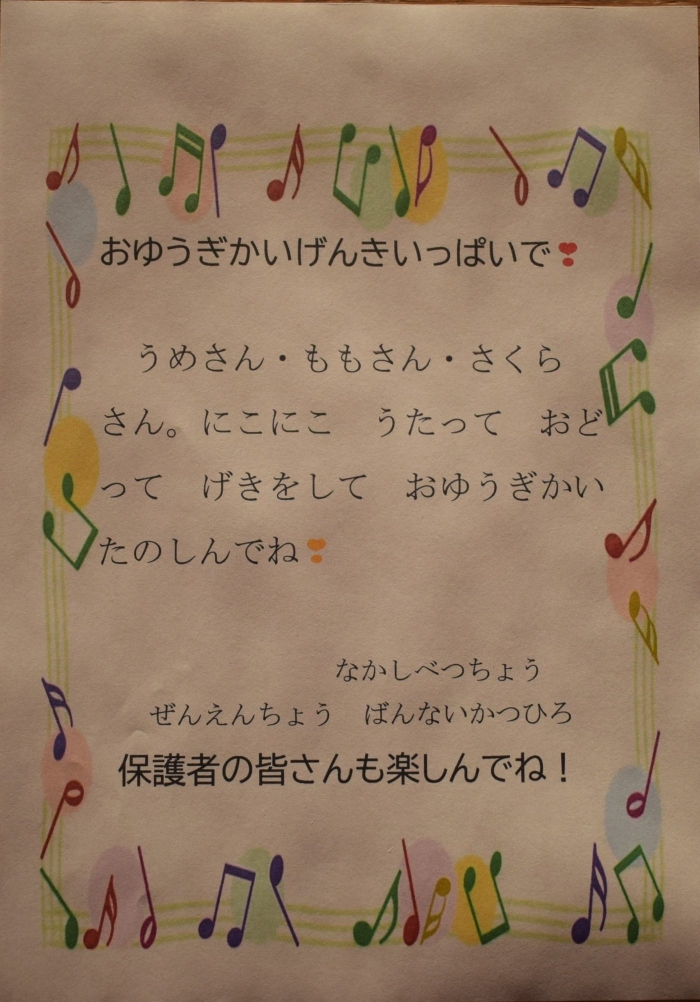 おゆうぎかいげんきいっぱいで❣
うめさん・ももさん・さくら
さん。にこにこ　うたって　おど
って　げきをして　おゆうぎかい
たのしんでね❣
なかしべつちょう
ぜんえんちょう　ばんないかつひろ
保護者の皆さんも楽しんでね！